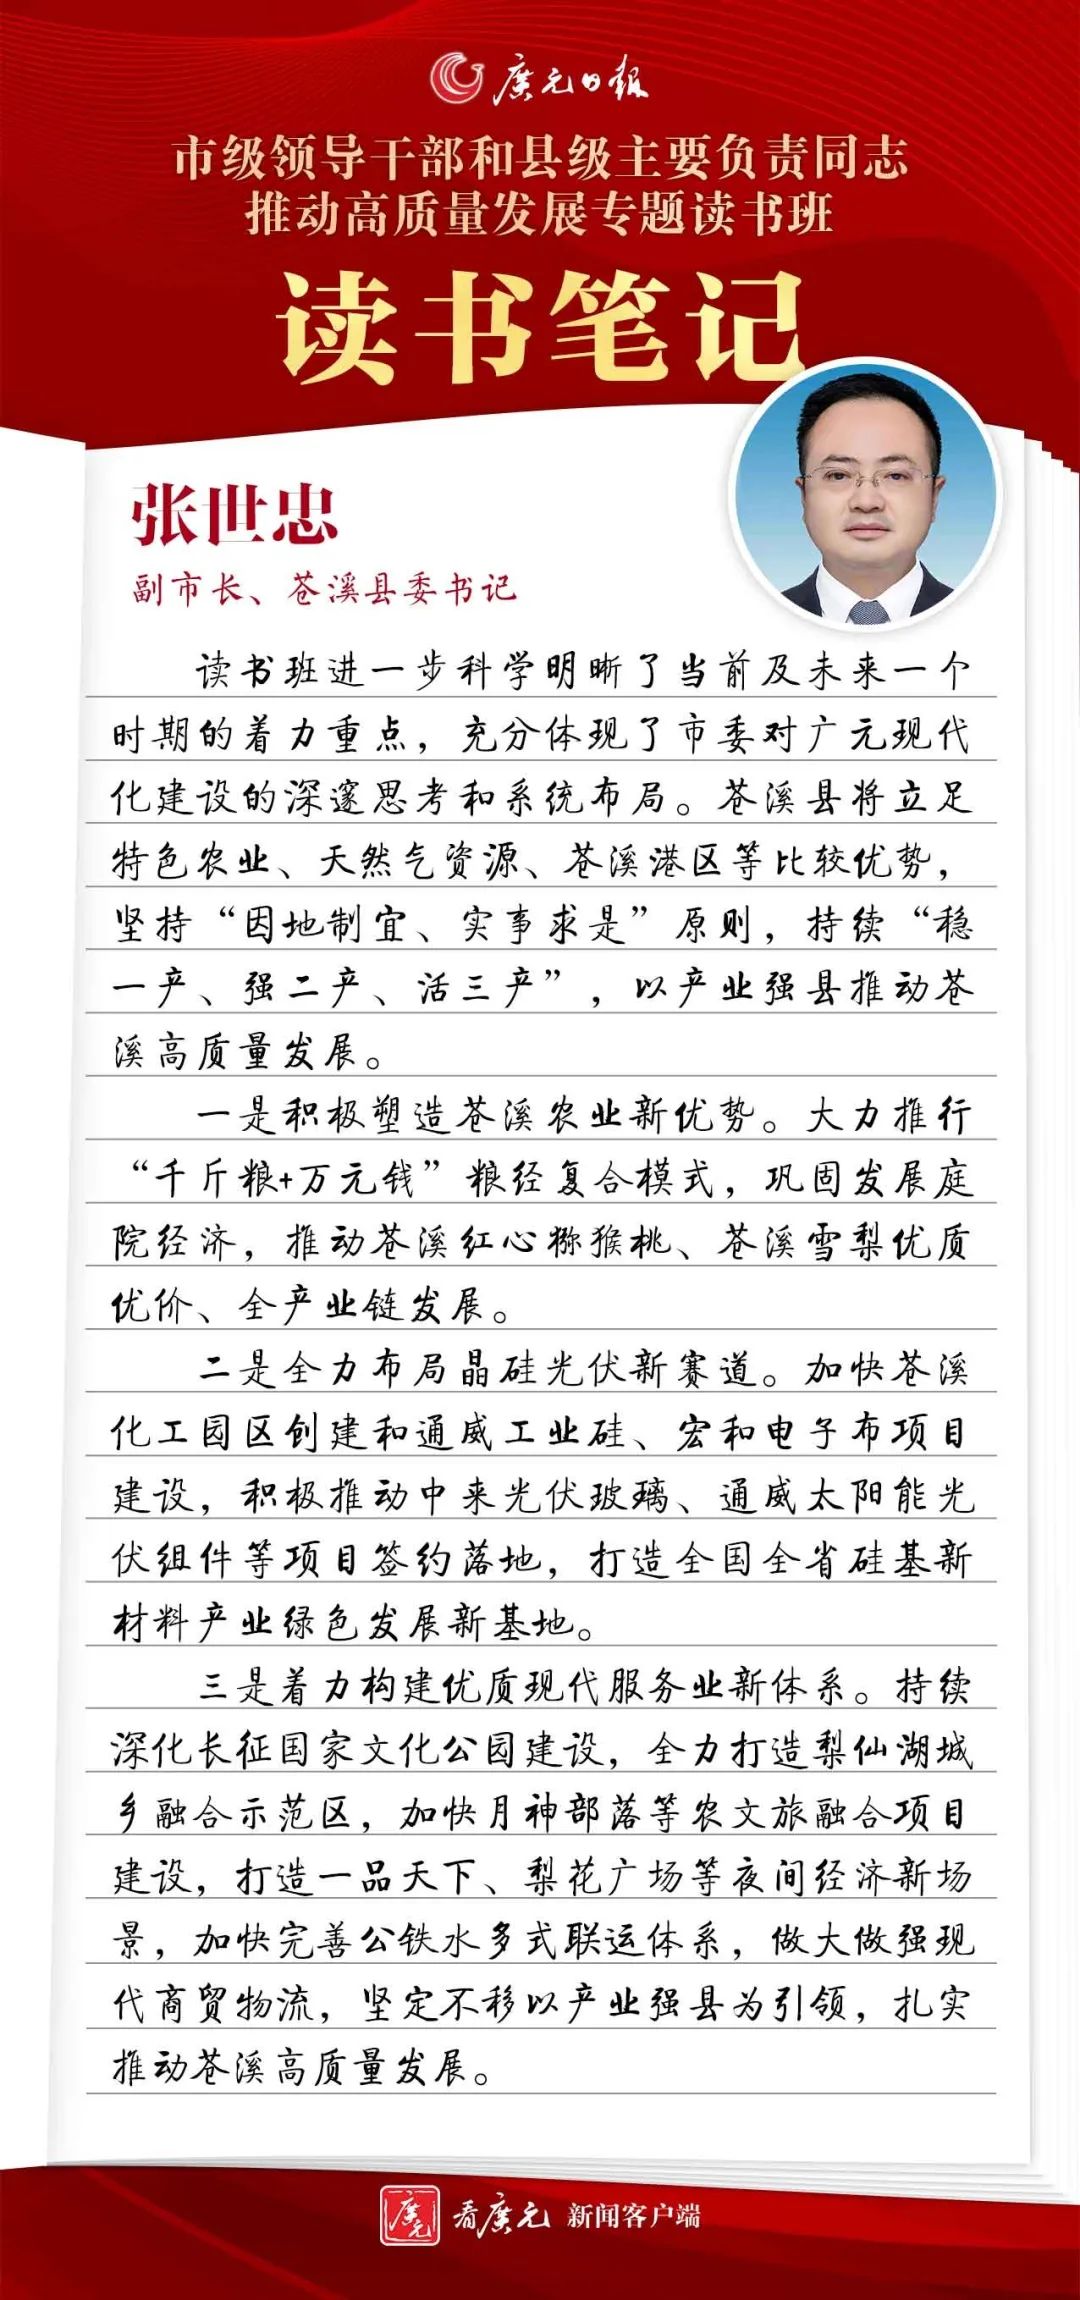 廣元日报
市级领导干部和县级主要负责同志
推动高质量发展专题读书班
读书笔记
张世忠
副市长、苍溪县委书记
读书班进一步科学明晰了当前及未来一个
时期的着力重点，充分体现了市委对广元现代
化建设的深邃思考和系统布局。苍溪县将立足
特色农业、天然气资源、苍溪港区等比较优势，
坚持“因地制宜、实事求是”原则，持续“稳
一产、强二产、活三产”，以产业强县推动苍
溪高质量发展。
一是积极塑造苍溪农业新优势。大力推行
“千斤粮+万元钱”粮经复合模式，巩固发展庭
院经济，推动苍溪红心猕猴桃、苍溪雪梨优质
优价、全产业链发展。
二是全力布局晶硅光伏新赛道。加快苍溪
化工园区创建和通威工业硅、宏和电子布项目
建设，积极推动中来光伏玻璃、通威太阳能光
伏组件等项目签约落地，打造全国全省硅基新
材料产业绿色发展新基地。
三是着力构建优质现代服务业新体系。持续
深化长征国家文化公园建设，全力打造梨仙湖城
乡融合示范区，加快月神部落等农文旅融合项目
建设，打造一品天下、梨花广场等夜间经济新场
景，加快完善公铁水多式联运体系，做大做强现
代商贸物流，坚定不移以产业强县为引领，扎实
推动苍溪高质量发展。
廣元 看廣元 新闻客户端